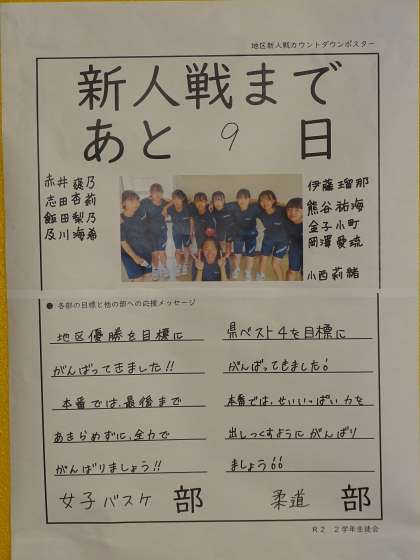 地区新人戦カウントダウンポスター
新人戦まで
あと 9 日
赤井 褒乃
志田 杏莉
飯田 梨乃
及川 海希
伊藤 瑠那
熊谷 祐海
金子 小町
岡澤 愛琉
小西 莉緒
● 各部の目標と他の部への応援メッセージ
地区優勝を目標に
がんばってきました!!
本番では、最後まで
あきらめずに、全力で
がんばりましょう!!
女子バスケ 部
県ベスト4を目標に
がんばってきました!
本番では、せいいっぱい力を
出しつくすようにがんばり
ましょう!!
柔道 部
R2 2学年生徒会